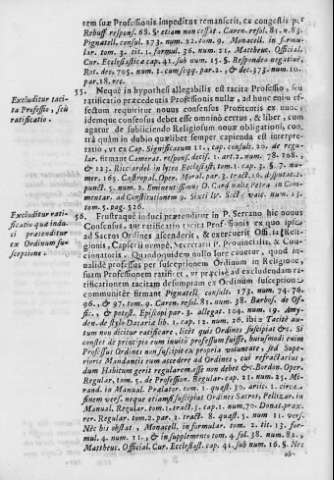 tem suæ Professionis impeditus remanserit, ex congestis per
Rebuff. respons. 68. & etiam non cessat. Caren. resol. 81. n. 3.
Pignatell. consult. 173. num. 32. tom. 9. Monacell. in formu-
lar. tom. 3. tit. 1. formul. 36. num. 21. Mattheuc. Official.
Cur. Ecclesiastic. cap. 41. sub num. 15. §. Respondeo negativè,
Rot. dec. 705. num. 1. cum seqq. par. 2., & dec. 373. num. 10.
par. 18. rec.
55. Neque in hypothesi allegabilis est tacita Professio, seu
ratificatio præcedentis Professionis nullæ, ad hunc enim ef-
fectum requiritur novus consensus Profitentis ex nunc
idemque consensus debet esse omninò certus, & liber, cum
agatur de subijciendo Religiosum novæ obligationi, con-
trà quam in dubio quælibet semper capienda est interpre-
tatio, ut ex Cap. Significatum 11., tap. consult. 20. de regu-
lar. firmant
num. 78. 108.,
& 123. Ricciard.
tom. 1. cap. 3. §. 7. nu-
mer. 165. Castropal. Oper. Moral. par. 3. tract. 16. disputat. 2.
punct. 5. num. 8. Eminentissimus D. Card. de Petra in Com-
mentar. ad Constitutionem
num. 13.
tom. 5. pag. 326.
Excluditur taci-
ta Professio, seu
ratificatio.
56. Frustraque induci prætenditur in P. Serrano hic novus
Consensus, aut ratificatio tacita Professionis ex quo ipse
ad Sacros Ordines ascenderit, & exercuerit Officia Reli-
gionis, Capiscit nempè, Secretarij P. Provincialis, & Con-
cionatoris. Quandoquidem nullo jure cavetur, quod in-
validè professus per susceptionem Ordinum in Religione,
suam Professionem ratificet, ut præcisè ad excludendam ra-
tificationem tacitam desumptam ex Ordinum susceptione
communiter firmant Pignatell. consult. 173. num. 74. 76.
96., & 97. tom. 9. Caren. resol. 81. num. 38. Barbos. de Of-
fic., & potest. Episcopi par. 3. allegat. 104. num. 19. Amy-
den. de stylo Datariæ lib. 1. cap. 12. num. 26. ibi = Tacitè au-
tem non dicitur ratificare, licèt quis Ordines suscipiat &c. Si
constet de principio eum invitò professum fuisse, hujusmodi enim
Professus Ordines non suscipit ex propria voluntate, sed Supe-
rioris Mandantis eum accedere ad Ordines, cui refractarius,
dum Habitum gerit regularem esse non debet &c. Bordon. Oper.
Regular. tom. 5. de Profession. Regular. cap. 21. num. 25. Mi-
rand. in Manual. Prælator. tom. 1. quæst. 30. artic. 1. circa
finem vers. neque etiam si suscipiat Ordines Sacros, Pelizar. in
Manual. Regular. tom. 1. tract. 3. cap. 1. num. 70. Donat. praxe
rer. Regular. tom. 2. par. 1. tract. 8. quæst. 5. num. 11. vers.
Nec his obstat, Monacell. in formular. tom. 2. tit. 13. for-
mul. 4. num. 11., & in supplementis tom. 4. fol. 38. num. 82.,
Mattheuc. Official. Cur. Ecclesiast. cap. 41. sub num. 16. §. Nec
ob-
Excluditur rati-
ficatio quæ indu-
ci prætenditur
ex Ordinum su-
sceptione.